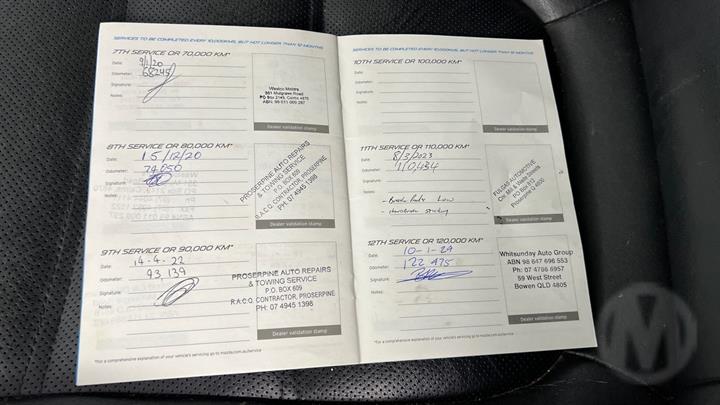 SERVICES TO BE COMPLETED EVERY 10,000KMS, BUT NOT LONGER THAN 12 MONTHS
7TH SERVICE OR 70,000 KM*
Date: 9/1/20
Odometer: 68245
Signature:
Notes:
Westco Motors
Mulgrave Road
PO Box 2145, Cairns 4870
Dealer validation stamp
8TH SERVICE OR 80,000 KM*
Date: 15/12/20
Odometer: 74050
Signature:
Notes:
PROSERPINE AUTO REPAIRS
& TOWING SERVICE
P.O. BOX 609
R.A.C.Q. CONTRACTOR, PROSERPINE
PH: 07 4945 1398
Dealer validation stamp
9TH SERVICE OR 90,000 KM*
Date: 14-4-22
Odometer: 93,139
Signature:
Notes:
PROSERPINE AUTO REPAIRS
& TOWING SERVICE
P.O. BOX 609
R.A.C.Q. CONTRACTOR, PROSERPINE
PH: 07 4945 1398
Dealer validation stamp
*For a comprehensive explanation of your vehicle's servicing go to mazda.com.au/service
SERVICES TO BE COMPLETED EVERY 10,000KMS, BUT NOT LONGER THAN 12 MONTHS
10TH SERVICE OR 100,000 KM*
Date:
Odometer:
Signature:
Notes:
Dealer validation stamp
11TH SERVICE OR 110,000 KM*
Date: 8/3/2023
Odometer: 110,434
Signature:
Notes:
- Brake Pads Low
FULGAS AUTOMOTIVE
Cnr Mill & Streets
PO Box 913
Proserpine Q 4800
Dealer validation stamp
12TH SERVICE OR 120,000 KM*
Date: 10-1-24
Odometer: 122475
Signature:
Notes:
Whitsunday Auto Group
ABN 98 647 696 553
Ph: 07 4786 6957
59 West Street
Bowen QLD 4805
Dealer validation stamp
*For a comprehensive explanation of your vehicle's servicing go to mazda.com.au/service
M